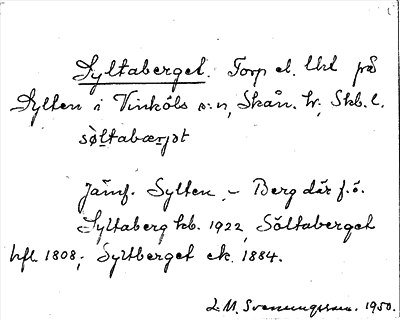 Syltaberget. Torp el. lht på
Sylten i Vinköls s:n, Skån. hr, Skb. l.
søltabærjət
Jämf. Sylten. – Berg där f. ö.
Syltaberg hb. 1922, Söltaberget
hfl. 1808; Syltberget ek. 1884.
L. M. Svenungsson. 1950.